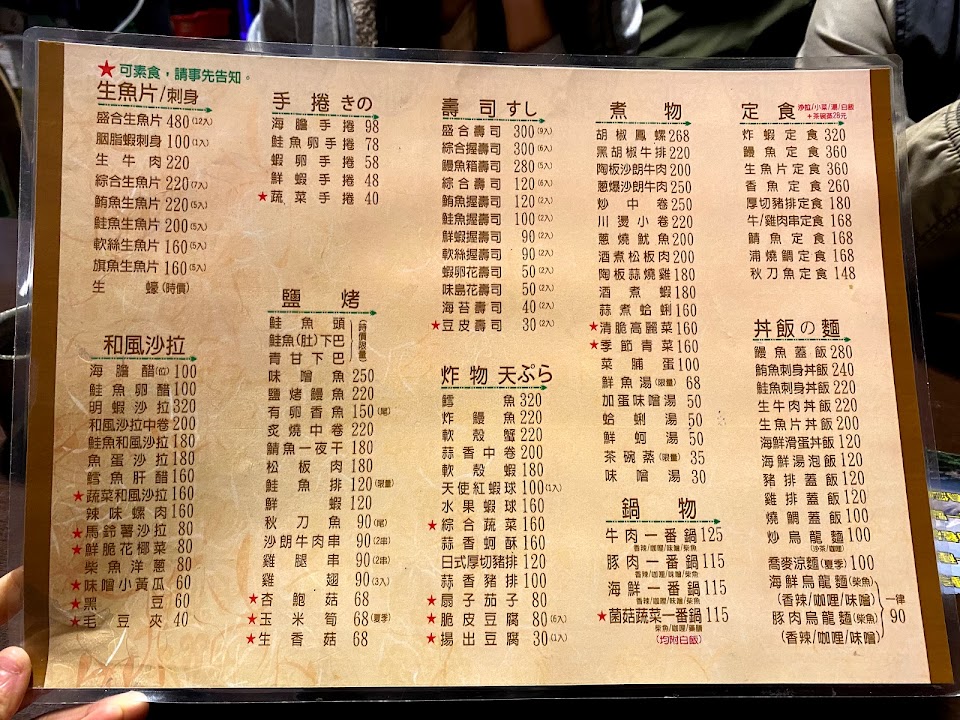 ★可素食，請事先告知。
生魚片/刺身
盛合生魚片 480 (12入)
胭脂蝦刺身 100 (1入)
生牛肉 220
綜合生魚片 220 (7入)
鮪魚生魚片 220 (5入)
鮭魚生魚片 200 (5入)
軟絲生魚片 160 (5入)
旗魚生魚片 160 (5入)
生蠔 (時價)
和風沙拉
海膽醋(位) 100
鮭魚卵醋 100
明蝦沙拉 320
和風沙拉中卷 200
鮭魚和風沙拉 180
魚蛋沙拉 180
鱈魚肝醋 160
★蔬菜和風沙拉 160
辣味螺肉 160
★馬鈴薯沙拉 80
★鮮脆花椰菜 80
柴魚洋蔥 80
★味噌小黃瓜 60
★黑豆 60
★毛豆夾 40
手捲 きの
海膽手捲 98
鮭魚卵手捲 78
蝦卵手捲 58
鮮蝦手捲 48
★蔬菜手捲 40
鹽烤
鮭魚頭
鮭魚(肚)下巴
青甘下巴
(時價限量)
味噌魚 250
鹽烤鰻魚 220
有卵香魚 150 (尾)
炙燒中卷 220
鯖魚一夜干 180
松板肉 180
鮭魚排 120 (限量)
鮮蝦 120
秋刀魚 90 (尾)
沙朗牛肉串 90 (2串)
雞腿串 90 (2串)
雞翅 90 (3入)
★杏鮑菇 68
★玉米筍 68 (夏季)
★生香菇 68
壽司 すし
盛合壽司 300 (9入)
綜合握壽司 300 (6入)
鰻魚箱壽司 280 (5入)
綜合壽司 120 (6入)
鮪魚握壽司 120 (2入)
鮭魚握壽司 100 (2入)
鮮蝦握壽司 90 (2入)
軟絲握壽司 90 (2入)
蝦卵花壽司 50 (2入)
味島花壽司 50 (2入)
海苔壽司 40 (2入)
★豆皮壽司 30 (2入)
炸物 天ぷら
鱈魚 320
炸鰻魚 220
軟殼蟹 220
蒜香中卷 200
軟殼蝦 180
天使紅蝦球 100 (1入)
水果蝦球 160
★綜合蔬菜 160
蒜香蚵酥 160
日式厚切豬排 120
蒜香豬排 100
★扇子茄子 80
★脆皮豆腐 80 (6入)
★揚出豆腐 30 (1入)
煮物
胡椒鳳螺 268
黑胡椒牛排 220
陶板沙朗牛肉 200
蔥爆沙朗牛肉 250
炒中卷 250
川燙小卷 220
蔥燒魷魚 200
酒煮松板肉 200
陶板蒜燒雞 180
酒煮蝦 180
蒜煮蛤蜊 160
★清脆高麗菜 160
★季節青菜 160
菜脯蛋 100
鮮魚湯(限量) 68
加蛋味噌湯 50
蛤蜊湯 50
鮮蚵湯 50
茶碗蒸(限量) 35
味噌湯 30
鍋物
牛肉一番鍋 125
香辣/咖哩/味噌/柴魚
豚肉一番鍋 115
香辣/咖哩/味噌/柴魚
海鮮一番鍋 115
香辣/咖哩/味噌/柴魚
★菌菇蔬菜一番鍋 115
(均附白飯)
定食
沙拉/小菜/湯/白飯
+茶碗蒸28元
炸蝦定食 320
鰻魚定食 360
生魚片定食 360
香魚定食 260
厚切豬排定食 180
牛/雞肉串定食 168
鯖魚定食 168
浦燒鯛定食 168
秋刀魚定食 148
丼飯の麵
鰻魚蓋飯 280
鮪魚刺身丼飯 240
鮭魚刺身丼飯 220
生牛肉丼飯 220
生魚片丼飯 220
海鮮滑蛋丼飯 120
海鮮湯泡飯 120
豬排蓋飯 120
雞排蓋飯 120
燒鯛蓋飯 100
炒烏龍麵 100
(沙茶/咖哩)
蕎麥涼麵(夏季) 100
海鮮烏龍麵(柴魚)
(香辣/咖哩/味噌)
豚肉烏龍麵(柴魚)
(香辣/咖哩/味噌)
一律90